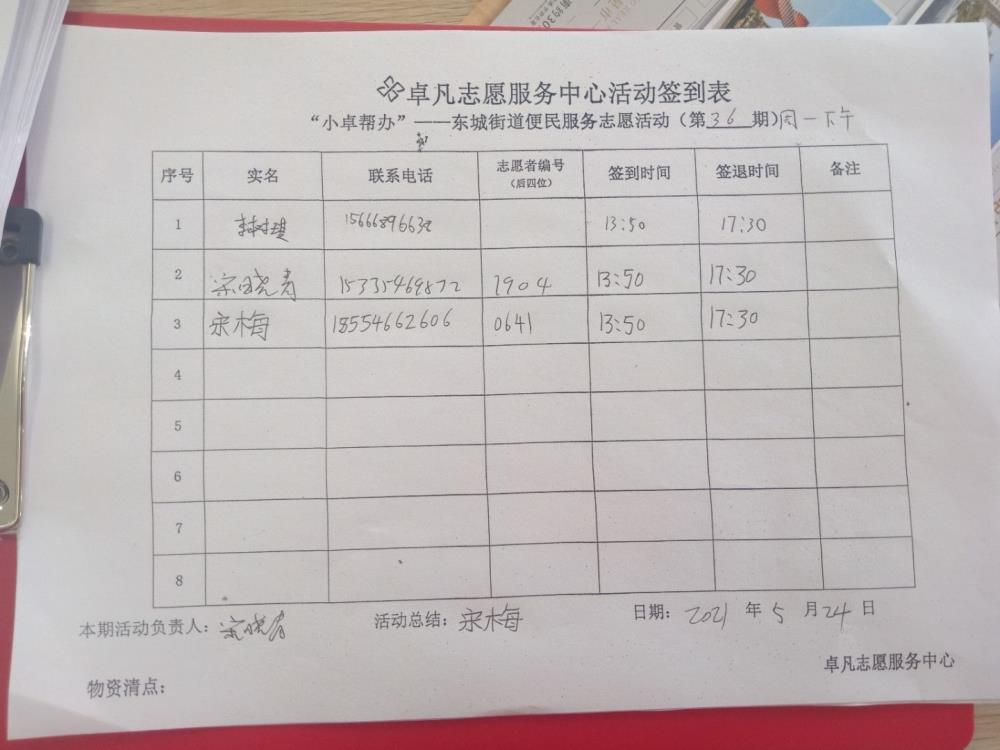 卓凡志愿服务中心活动签到表
“小卓帮办”——东城街道便民服务志愿活动（第36期）周一下午
序号 实名 联系电话 志愿者编号（后四位） 签到时间 签退时间 备注
1 15666896638 13:50 17:30
2 宗晓青 15335469872 7904 13:50 17:30
3 宋梅 18554662606 0641 13:50 17:30
4
5
6
7
8
本期活动负责人：宗晓青 活动总结：宋梅 日期：2021年5月24日
卓凡志愿服务中心
物资清点：